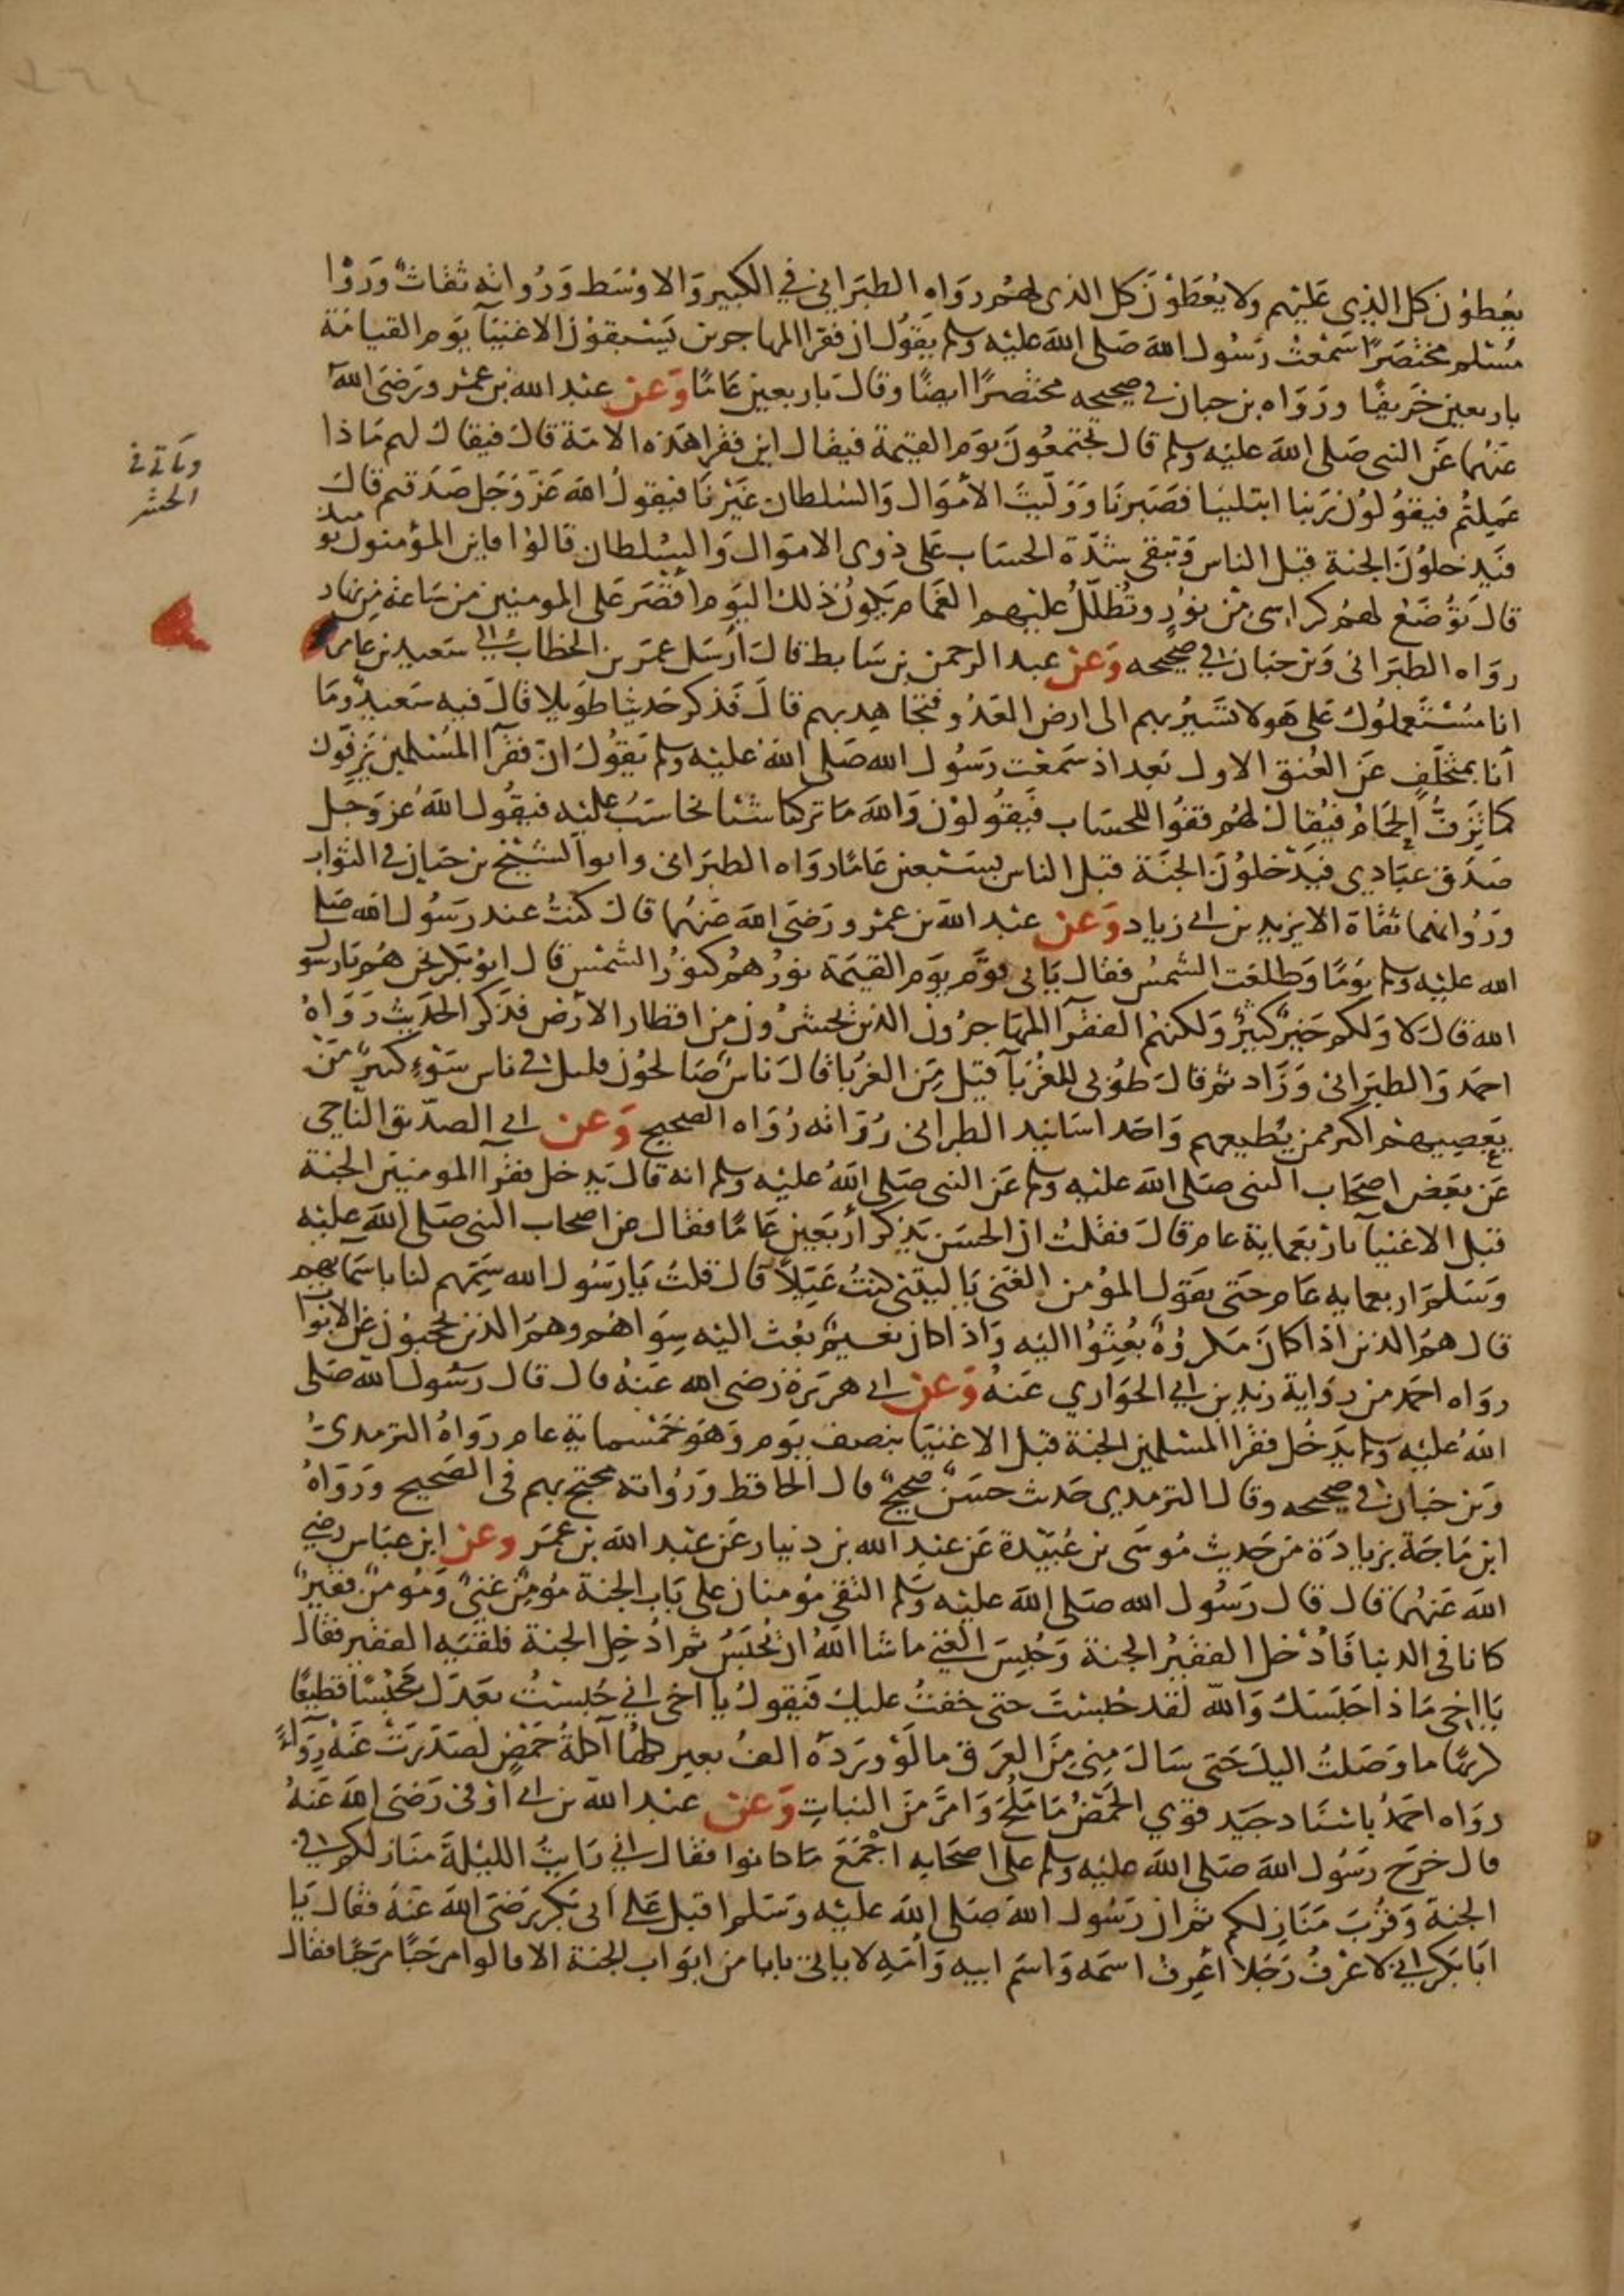 يُعطوْن كل الذِي عَليْهم ولا يُعْطَوْنَ كل الذى لهُم رواه الطبَراني في الكبير وَالاوْسَط وَرُواته ثقاتٌ وَرَوَا
مُسْلم مختصَرًا سَمعْتُ رسُول الله صَلى الله عليْه وسلم يَقوُل ان فقرا المهاجرين يَسْبقوْن الاغنيَآ يوَم القيَامَة
باربعين خَريفًا ورَوَاه بن حبان في صحيحه مختصرًا ايضًا وقال باربعين عَامًا وَعن عبْد الله بن عمْرو رَضَى الله
عَنْهُما عَن النبى صَلى الله عليْه وسلم قال تجتمعُونَ يوَم القيٰمة فيقال اين فقرا هَذه الامّة قال فيقال لهم مَاذا
عَمِلتُم فيقوُلوُن رَبنا ابتليْنا فصَبرنَا وَوَلّيتَ الأمْوَال وَالسُلطان غيْرنَا فيقولُ الله عَزّ وَجَل صَدَقتم قال
فيَدخلوُنَ الجنة قبْل الناس وَتبقى شدّة الحسَاب عَلى ذوى الامَوال وَالسُلطان قالوْا فاين المؤمنوُن يوميذ
قال تَوُضَعْ لهُم كراسى مِنْ نوُرٍ وتُظلّلُ عَليْهم الغمَام يكوُن ذلك اليَوم اقصَر عَلى المومنين من سَاعة مِن نهار
روَاه الطبَرانى وَبن حبان في صحيحه وَعَن عبد الرحمن بن سَابط قال أرسَل عمَر بن الخطاب الي سَعيد بن عامر
انا مُسْتَعملوُك عَلى هَولا تَسَيرُ بهم الى ارض العَدُو فتجَاهِد بهم قال فَذكر حَديثا طوَيلا قال فيه سَعيدٌ ومَا
أنا بمتخلّفٍ عَن العُنق الاول بَعد اذ سَمعْت رَسُول الله صَلى الله عليْه وسلم يقوُل انّ فقرَآ المُسْلمين يَزفوُن
كما تَزفُّ الحَمَامُ فيُقال لهُم قفوُا للحسَاب فيَقوُلوْن وَالله مَا تركنا شيئا نحاسَبُ عليْه فيقوُل اللهُ عَز وَجَل
صَدَق عبَادي فيَدْخلوُنَ الجنَة قبْل الناس بسَبْعين عَامًا روَاه الطبَرانى وابوا الشيْخ بن حبان في الثواب
ورُوَاتهما ثقاة الا يزيد بن ابى زياد وَعَن عبْد الله بن عمْرو رَضَى الله عَنهُما قال كنتُ عند رَسُول الله صَلى
الله عليْه وسلم يَومًا وَطلعَت الشمسُ فقال يَاتى قوَم يوَم القيٰمة نورُهُم كنوُر الشمْس قال ابوُ بَكر نحن هُم يَا رسَول
الله قال لا وَلكم خَيْرٌ كَثيرٌ وَلكنهُم الفقرآ المهَاجرُون الذين يُحشرُون من اقطار الأرْض فذكر الحَديث رَوَاهُ
احمَد وَالطبَرانى وَزَاد ثم قال طوُبى للغرُبَآ قيْل مَن الغرَبا قال نَاسٌ صَالحُون قليل في ناس سَوْءٍ كثيرٍ مَنْ
يعصِيهْم اكثر ممن يُطيعهم وَاحَد اسَانيد الطبرانى رُوَاته رُوَاه الصحيح وَعَن ابى الصدّيق الناجي
عَن بعَض اصحَاب النبى صَلى الله عليْه وسلم عَن النبى صَلى اللهُ عليْه وسلم انه قال يَدخل فقرآ المومنيَن الجنة
قبْل الاغنيَآ بارْبَعمَاية عام قال فقلتُ ان الحسَن يَذكر أربَعين عَامًا فقال عن اصحاب النبى صَلى الله عليْه
وَسَلم اربعمايه عَام حَتى يقوَل المؤمن الغنَى يَا ليْتنى كنتُ عَيّلاً قال قلتُ يَا رَسُول الله سَمّهم لنا باسَمآيهم
قال هم الذين اذا كانَ مَكروُهٌ بُعِثوُا اليْه وَاذا كان نعيمٌ بُعث اليْه سِوَاهُم وهم الذين يُحجبوُن عَن الابوَاب
روَاه احمَد من روَاية زيد بن ابي الحوَاري عَنهُ وَعَن ابى هرَيرَة رَضى الله عَنهُ قال قال رسُول الله صَلى
اللهُ عليْه وسلم يَدخُل فقرا المسْلمين الجنة قبْل الاغنيَا بنصف يوَم وَهوَ خمسماية عام روَاهُ الترمدىُ
وَبن حبان في صحيحه وقال الترمدى حَديث حسَنٌ صحيْحٌ قال الحافظ وَرُواته محتج بهم فى الصَحيح وَروَاهُ
ابن مَاجَة بزيادَة من حَديث مُوسَى بن عُبيْدة عَن عبْد الله بن دنيار عَن عبْد الله بن عمَر وعن ابن عبَاس رضي
الله عَنهُما قال قال رَسُول الله صَلى الله عليْه وسَلم التقى مُومنان على بَاب الجنة مُومِنٌ غنيٌ وَمُومنٌ فقيرٌ
كانا فى الدنيا فَأدْخل الفقيْرُ الجنة وَحُبسَ الغنى ماشا اللهُ ان يُحْبَسُ ثم ادُخِل الجنة فلقيَه الفقير فقال
يَا اخى مَاذا احَبَسَكَ وَالله لقد حُبسْتَ حتى خفتُ عليك فيَقول يَا اخى انى حُبسْتُ بعَدَك مَحْبَسًا فظيعًا
كريهًا ما وَصَلتُ اليكَ حَتى سَال مِنى مِنَ العرَق ما لَوْ ورَدَهُ الف بعير كلهُا آكلةُ حَمْضٍ لصَدَرَتْ عَنهُ رِوَآءً
روَاه احمَدُ باسْنَاد جيَد قوَي الحَمْضُ مَا مَلُحَ وَامرَّ مَن النبات وَعَن عبْد الله بن ابى أوْفى رَضَى الله عَنهُ
قال خرَج رَسُول الله صَلى الله عليْه وسلم على اصحَابه اجْمَعَ مَا كانوا فقال اني رَايتُ الليْلةَ مَنَازلكم في
الجنة وَقرُبَ مَنَازِلكم ثم ان رَسُول الله صَلى الله عليْه وسَلم اقبل عَلى ابى بَكر رَضَى الله عَنهُ فقال يَا
ابَا بَكر انى لاعْرفُ رَجُلا أعْرِف اسمَه وَاسَم ابيه وَاُمّهِ لا ياتى بابا من ابوَاب الجنة الا قالوا مرحَبًا مرَحَبًا فقال
وياتى فى
الحشر